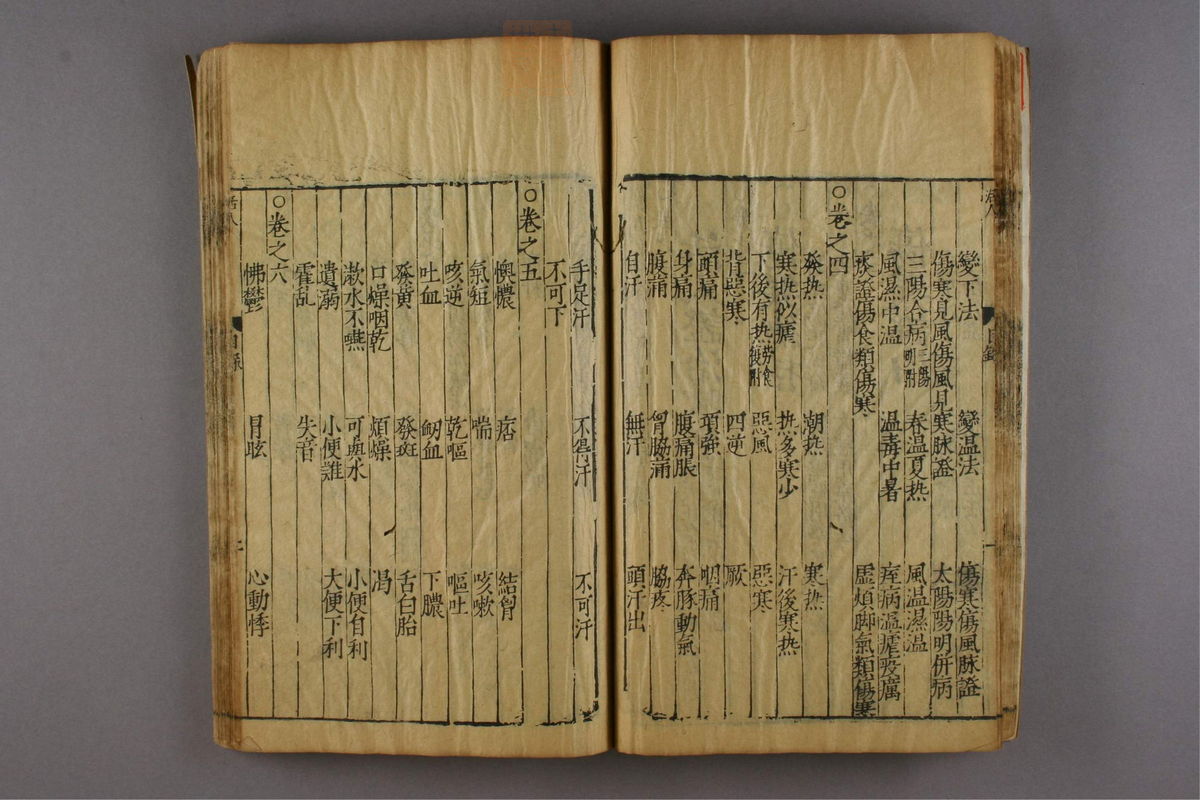 變下法 變温法 傷寒傷風脉證
傷寒見風傷風見寒脉證 太陽陽明併病
三陽合病三陽明附 春温夏热 風温濕温
風濕中温 温毒中暑 痓病温瘧疫癘
痰證傷食類傷寒 虚煩脚氣類傷寒
○卷之四
發热 潮热 寒热
寒热似瘧 热多寒少 汗後寒热
下後有热劳食復附 惡風 惡寒
背惡寒 四逆 厥
頭痛 項強 咽痛
身痛 腹痛脹 奔豚動氣
腹痛 胷脇痛 脇疼
自汗 無汗 頭汗出
手足汗 不得汗 不可汗
不可下
○卷之五
懊憹 痞 結胷
氣短 喘 咳嗽
咳逆 乾嘔 嘔吐
吐血 衂血 下膿
發黄 發斑 舌白胎
口燥咽乾 煩燥 渴
漱水不嚥 可與水 小便自利
遺溺 小便難 大便下利
霍乱 失音
○卷之六
怫鬱 目眩 心動悸
活人 目錄